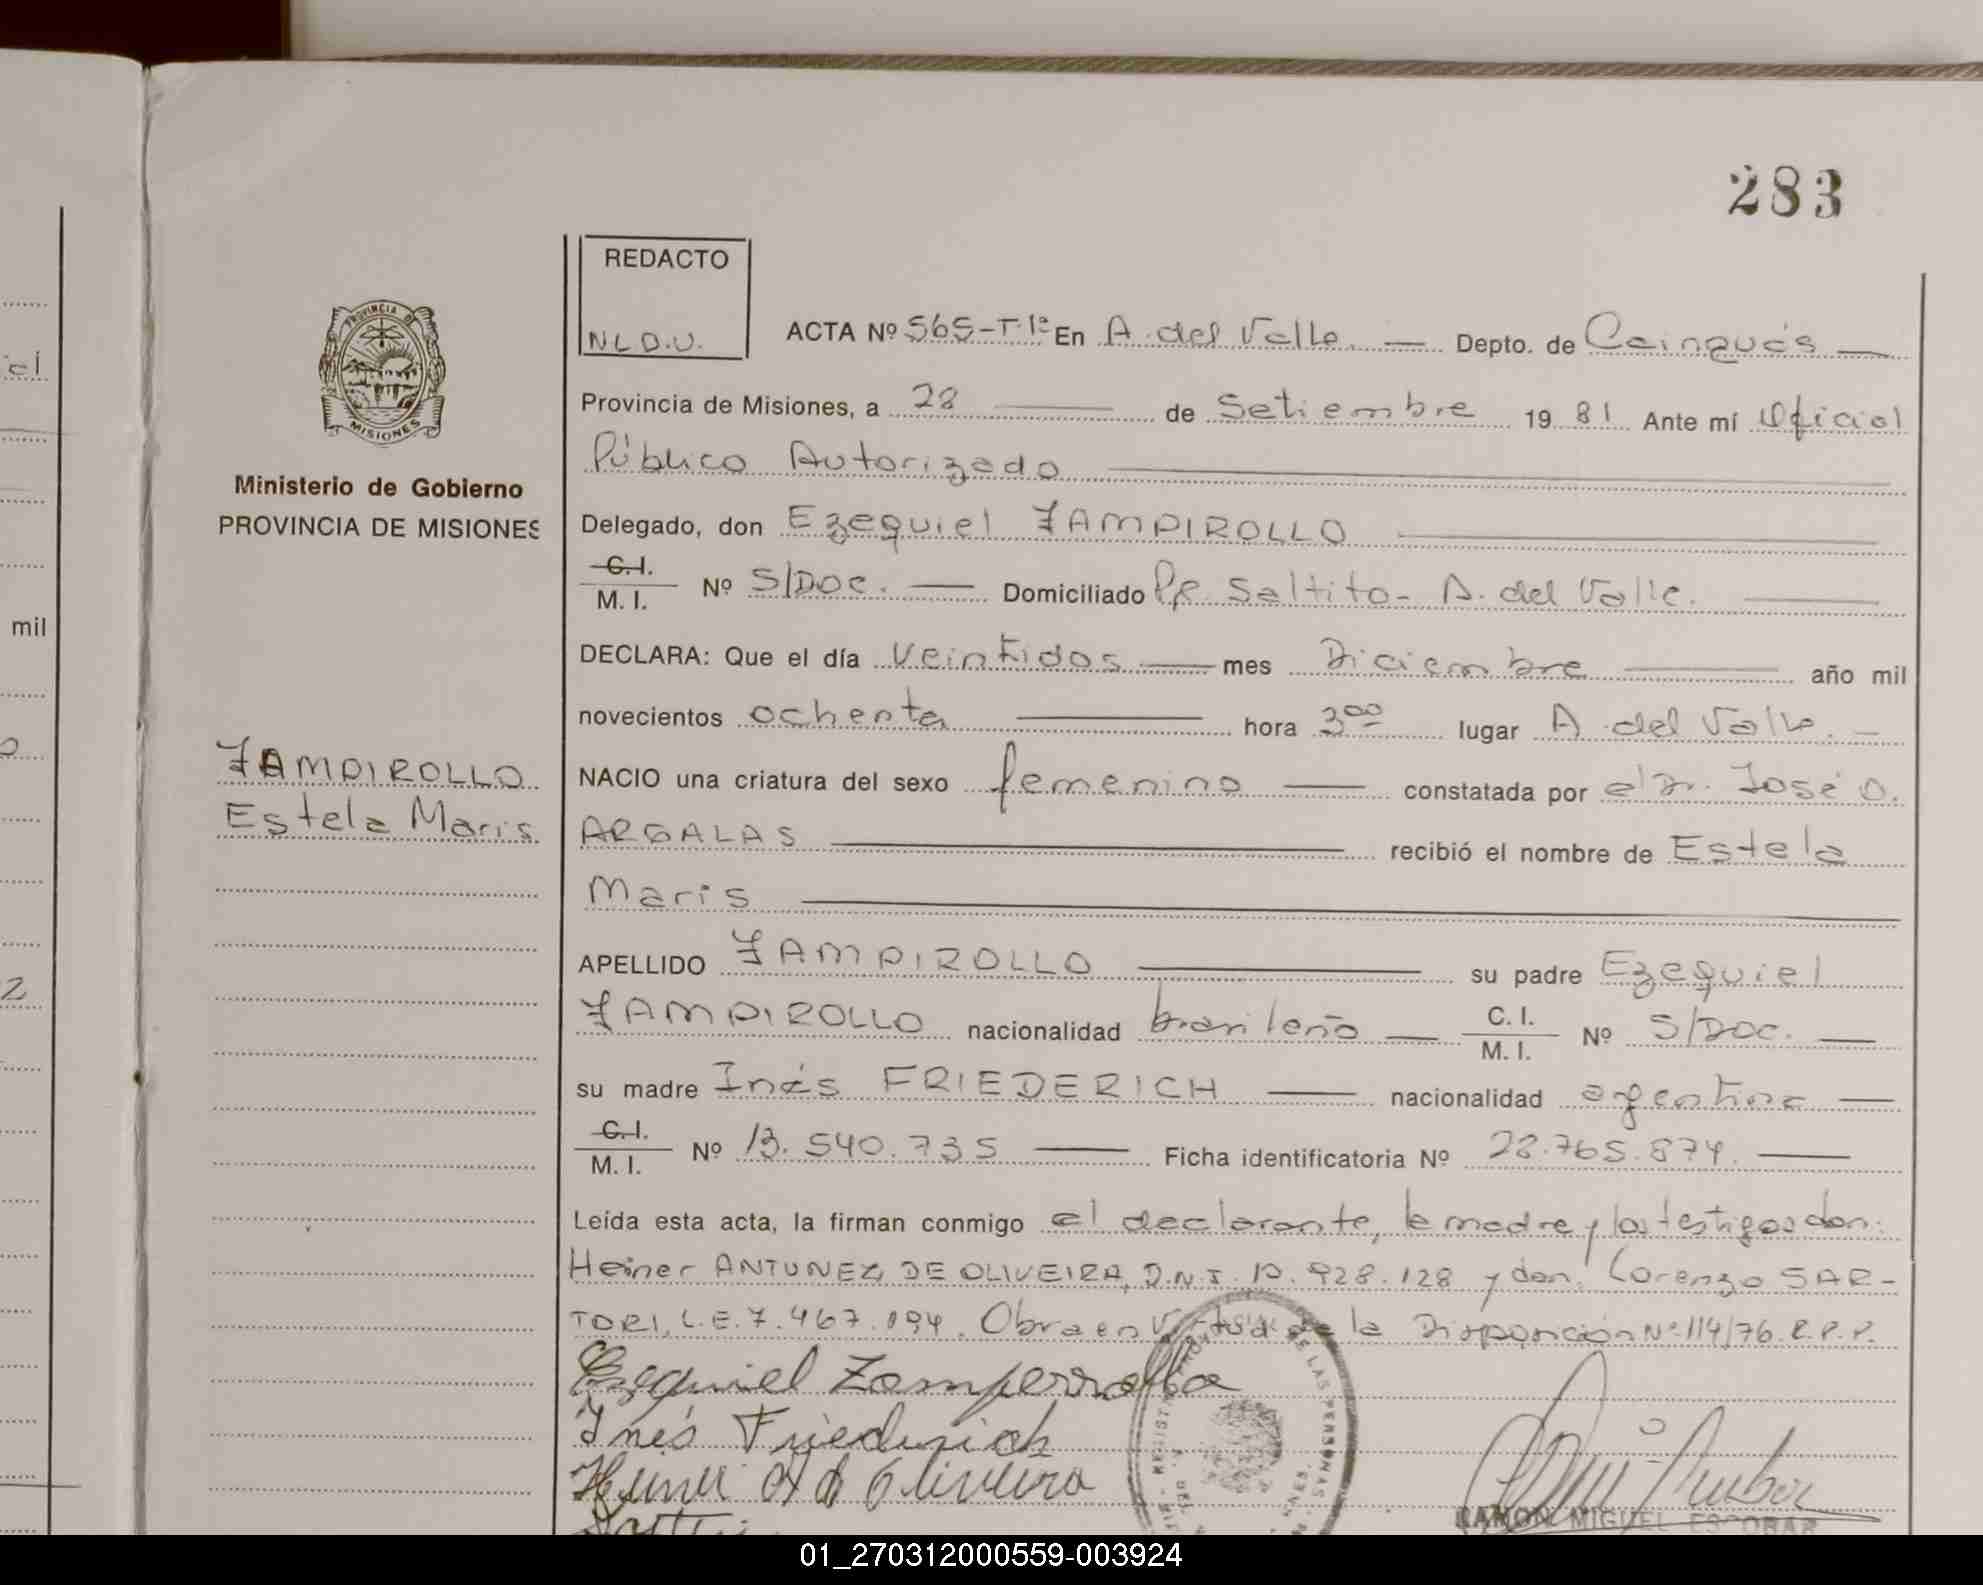 283
REDACTO
N.L.D.V.
ACTA Nº 565-T.1º En A. del Valle. Depto. de Cainguás
PROVINCIA DE
MISIONES
Provincia de Misiones, a 28 de Setiembre 1981 Ante mí Oficial
Público Autorizado
Ministerio de Gobierno
PROVINCIA DE MISIONES
Delegado, don Ezequiel ZAMPIROLLO
C.I.
M. I. Nº S/DOC. Domiciliado Pje. Saltito - A. del Valle.
mil
DECLARA: Que el día veintidos mes Diciembre año mil
novecientos ochenta hora 3⁰⁰ lugar A. del Valle.
ZAMPIROLLO
Estela Maris.
NACIO una criatura del sexo femenino constatada por el Dr. José O.
ARGALAS recibió el nombre de Estela
Maris
APELLIDO ZAMPIROLLO su padre Ezequiel
ZAMPIROLLO nacionalidad brasileño C. I. M. I. Nº S/DOC.
su madre Inés FRIEDERICH nacionalidad argentina
C.I.
M. I. Nº 13.540.735 Ficha identificatoria Nº 28.765.874.
Leída esta acta, la firman conmigo el declarante, la madre y los testigos don:
Heiner ANTUNEZ DE OLIVEIRA, D.N.I. 928.128 y don: Lorenzo SAR-
TORI, L.E. 7.467.094. Obra en Virtud de la Disposición Nº 114/76. R.P.P.
Ezequiel Zamperrolla
Inés Friederich
Heiner A d Oliveira
RAMON MIGUEL ESCOBAR
01_270312000559-003924